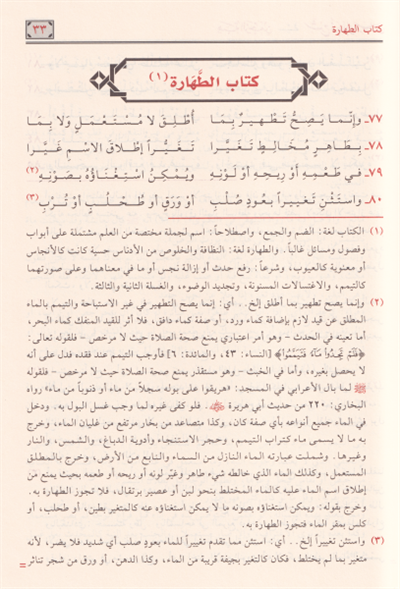 كتاب الطهارة
٣٣
كتاب الطَّهَارة (١)
٧٧ـ وإنَّمـا يَـصِـحُّ تَـطْـهِـيـرٌ بِـمَـا أُطْـلِـقَ لا مُـسْـتَـعْـمَـلٍ وَلا بِـمَـا
٧٨ـ بِـطَـاهِـرٍ مُـخَـالِـطٍ تَـغَـيَّـرا تَـغَـيُّـراً إطْـلاقَ الاسْـمِ غَـيَّـرا
٧٩ـ في طَـعْـمِـهِ أَوْ رِيـحِـهِ أَوْ لَـوْنِـهِ ويُـمْـكِـنُ اسْـتِـغْـنَـاؤُهُ بِـصَـوْنِـهِ(٢)
٨٠ـ واسـتَـثْـنِ تَـغـيـيـراً بـعُـودٍ صُـلْـبِ أَوْ وَرَقٍ أَو طُـحْـلُـبٍ أَوْ تُـرْبِ(٣)
(١) الكتاب لغة: الضم والجمع، واصطلاحاً: اسم لجملة مختصة من العلم مشتملة على أبواب
وفصول ومسائل غالباً. والطهارة لغة: النظافة والخلوص من الأدناس حسية كانت كالأنجاس
أو معنوية كالعيوب، وشرعاً: رفع حدث أو إزالة نجس أو ما في معناهما وعلى صورتهما
كالتيمم، والاغتسالات المسنونة، وتجديد الوضوء، والغسلة الثانية والثالثة.
(٢) وإنما يصح تطهير بما أطلق إلخ.. أي: إنما يصح التطهير في غير الاستباحة والتيمم بالماء
المطلق عن قيد لازم بإضافة كماء ورد، أو صفة كماء دافق، فلا أثر للقيد المنفك كماء البحر،
أما تعينه في الحدث – وهو أمر اعتباري يمنع صحة الصلاة حيث لا مرخص – فلقوله تعالى:
﴿فَلَمْ تَجِدُوا مَاءً فَتَيَمَّمُوا﴾ [النساء: ٤٣، والمائدة: ٦] فأوجب التيمم عند فقده فدل على أنه
لا يحصل بغيره، وأما في الخبث – وهو مستقذر يمنع صحة الصلاة حيث لا مرخص – فلقوله
ﷺ لما بال الأعرابي في المسجد: «هريقوا على بوله سجلاً من ماء أو ذنوباً من ماء» رواه
البخاري: ٢٢٠ من حديث أبي هريرة .. فلو كفى غيره لما وجب غسل البول به. ودخل
في الماء جميع أنواعه بأي صفة كان، وكذا متصاعد من بخار مرتفع من غليان الماء، وخرج
به ما لا يسمى ماء كتراب التيمم، وحجر الاستنجاء وأدوية الدباغ، والشمس، والنار
وغيرها. وشملت عبارته الماء النازل من السماء والنابع من الأرض، وخرج بالمطلق
المستعمل، وكذلك الماء الذي خالطه شيء طاهر وغيّر لونه أو ريحه أو طعمه بحيث يمنع من
إطلاق اسم الماء عليه كالماء المختلط بنحو لبن أو عصير برتقال، فلا تجوز الطهارة به.
وخرج بقوله: ويمكن استغناؤه بصونه ما لا يمكن استغناؤه عنه كالمتغير بطين، أو طحلب، أو
كلس بمقر الماء فتجوز الطهارة به.
(٣) واستثن تغييراً إلخ.. أي: استثن مما تقدم تغييراً للماء بعود صلب أي شديد فلا يضر، لأنه
متغير بما لم يختلط، فكان كالتغير بجيفة قريبة من الماء، وكذا الدهن، أو ورق من شجر تناثر =